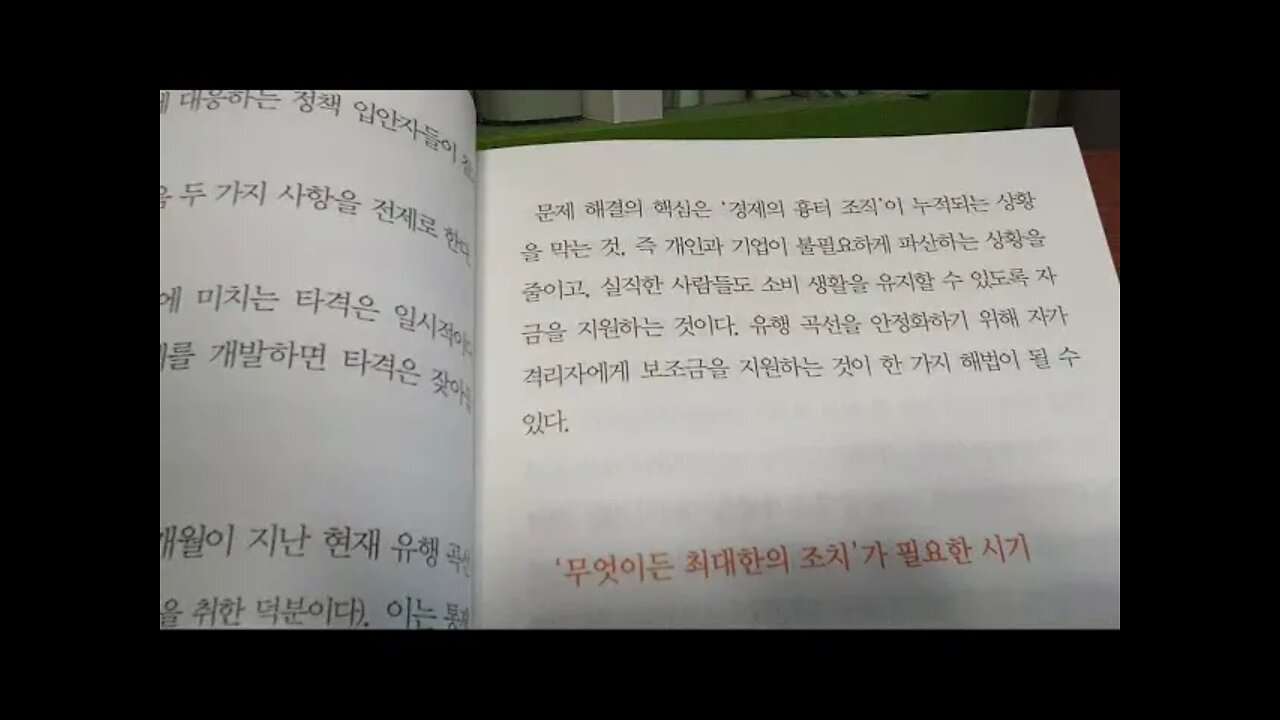 대응하는 정책 입안자들이
두 가지 사항을 전제로 한다.
에 미치는 타격은 일시적이다
를 개발하면 타격은 잦아들
개월이 지난 현재 유행 곡선
을 취한 덕분이다). 이는
문제 해결의 핵심은 '경제의 흉터 조직'이 누적되는 상황
을 막는 것, 즉 개인과 기업이 불필요하게 파산하는 상황을
줄이고, 실직한 사람들도 소비 생활을 유지할 수 있도록 자
금을 지원하는 것이다. 유행 곡선을 안정화하기 위해 자가
격리자에게 보조금을 지원하는 것이 한 가지 해법이 될 수
있다.
'무엇이든 최대한의 조치'가 필요한 시기